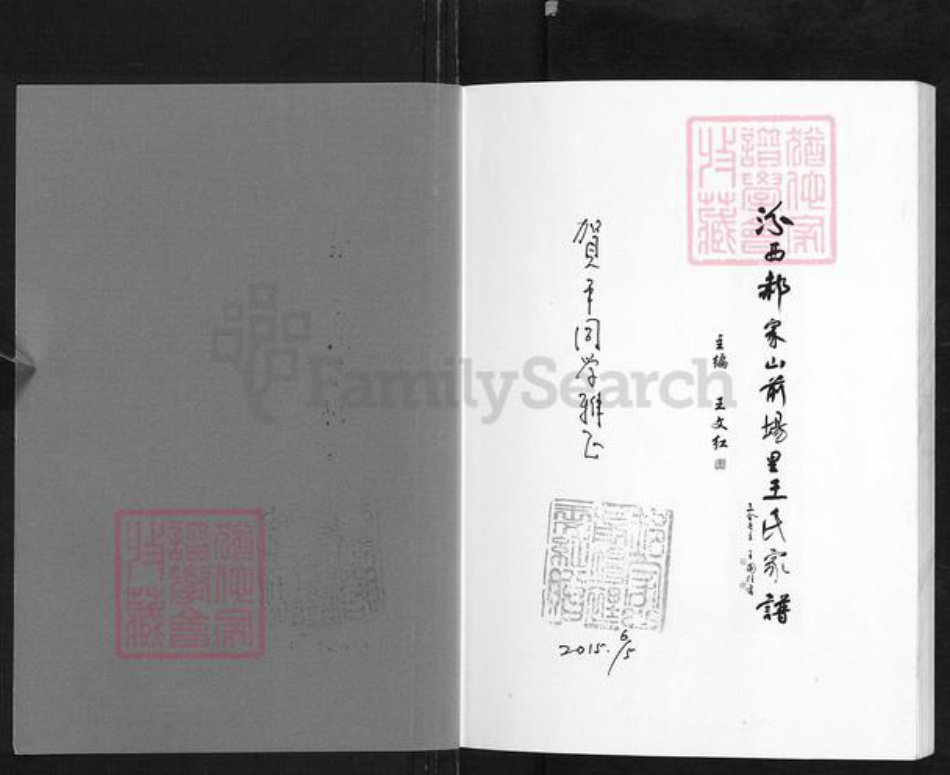 汾西郝家山前場里王氏家譜
主编 王文红
賀平同学雅正
2015. 6/5
猶他家
譜學會
收藏
猶他家
譜學會
收藏
FamilySearch